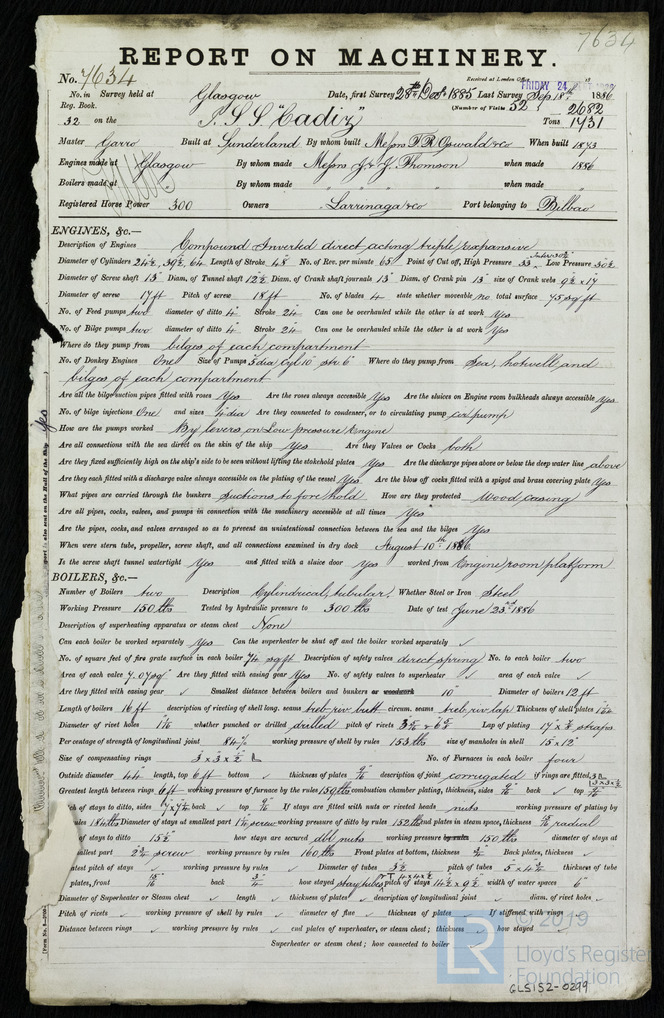 7634
REPORT ON MACHINERY.
No. 7634
Received at London Office FRIDAY 24
No. in Survey held at Glasgow Date, first Survey 28th Oct 1885 Last Survey Sep 18th 1886
Reg. Book. (Number of Visits 52)
32 on the S.S. "Cadiz" Tons 2682 1731
Master Garro Built at Sunderland By whom built Messrs T.R. Oswald & Co When built 1873
Engines made at Glasgow By whom made Messrs J. & G. Thomson when made 1886
Boilers made at " By whom made " " " " when made "
Registered Horse Power 300 Owners Larrinaga & Co Port belonging to Bilbao
ENGINES, &c.—
Description of Engines Compound Inverted direct acting triple expansive
Diameter of Cylinders 24½, 39½, 64 Length of Stroke 48 No. of Rev. per minute 65 Point of Cut off, High Pressure 33 Low Pressure 30½
Diameter of Screw shaft 13" Diam. of Tunnel shaft 12½ Diam. of Crank shaft journals 13" Diam. of Crank pin 13" size of Crank webs 9½ x 17"
Diameter of screw 17 ft Pitch of screw 18 ft No. of blades 4 state whether moveable no total surface 75 sq ft
No. of Feed pumps two diameter of ditto 4" Stroke 24" Can one be overhauled while the other is at work Yes
No. of Bilge pumps two diameter of ditto 4" Stroke 24" Can one be overhauled while the other is at work Yes
Where do they pump from bilges of each compartment
No. of Donkey Engines One Size of Pumps 5 dia Cyl 10" str 6" Where do they pump from Sea, hotwell and
bilges of each compartment
Are all the bilge suction pipes fitted with roses Yes Are the roses always accessible Yes Are the sluices on Engine room bulkheads always accessible Yes
No. of bilge injections One and sizes 4" dia Are they connected to condenser, or to circulating pump cir pump
How are the pumps worked By levers on Low pressure Engine
Are all connections with the sea direct on the skin of the ship Yes Are they Valves or Cocks both
Are they fixed sufficiently high on the ship's side to be seen without lifting the stokehold plates Yes Are the discharge pipes above or below the deep water line above
Are they each fitted with a discharge valve always accessible on the plating of the vessel Yes Are the blow off cocks fitted with a spigot and brass covering plate Yes
What pipes are carried through the bunkers Suctions to fore hold How are they protected Wood casing
Are all pipes, cocks, valves, and pumps in connection with the machinery accessible at all times Yes
Are the pipes, cocks, and valves arranged so as to prevent an unintentional connection between the sea and the bilges Yes
When were stern tube, propeller, screw shaft, and all connections examined in dry dock August 10th 1886
Is the screw shaft tunnel watertight Yes and fitted with a sluice door Yes worked from Engine room platform
BOILERS, &c.—
Number of Boilers two Description Cylindrical, tubular Whether Steel or Iron Steel
Working Pressure 150 lbs Tested by hydraulic pressure to 300 lbs Date of test June 23rd 1886
Description of superheating apparatus or steam chest None
Can each boiler be worked separately Yes Can the superheater be shut off and the boiler worked separately ✓
No. of square feet of fire grate surface in each boiler 74 sq ft Description of safety valves direct spring No. to each boiler two
Area of each valve 7.07 sq" Are they fitted with easing gear Yes No. of safety valves to superheater ✓ area of each valve ✓
Are they fitted with easing gear ✓ Smallest distance between boilers and bunkers or woodwork 10" Diameter of boilers 12 ft
Length of boilers 16 ft description of riveting of shell long. seams treb riv butt circum. seams treb riv lap Thickness of shell plates
Diameter of rivet holes whether punched or drilled drilled pitch of rivets Lap of plating straps
Per centage of strength of longitudinal joint 84% working pressure of shell by rules 153 lbs size of manholes in shell 15 x 12"
Size of compensating rings 3 x 3 x ½ No. of Furnaces in each boiler four
Outside diameter 44" length, top 6 ft bottom ✓ thickness of plates description of joint corrugated if rings are fitted
Greatest length between rings 6 ft working pressure of furnace by the rules 159 lbs combustion chamber plating, thickness, sides back ✓ top
of stays to ditto, sides back ✓ top If stays are fitted with nuts or riveted heads nuts working pressure of plating by
rules 184 lbs Diameter of stays at smallest part screw working pressure of ditto by rules 152 lbs end plates in steam space, thickness radial
of stays to ditto 15½ how stays are secured dbl nuts working pressure by rules 150 lbs diameter of stays at
smallest part screw working pressure by rules 160 lbs Front plates at bottom, thickness Back plates, thickness ✓
greatest pitch of stays ✓ working pressure by rules ✓ Diameter of tubes 3½ pitch of tubes thickness of tube
plates, front back how stayed stay tubes pitch of stays width of water spaces 6"
Diameter of Superheater or Steam chest ✓ length ✓ thickness of plates ✓ description of longitudinal joint ✓ diam. of rivet holes ✓
Pitch of rivets ✓ working pressure of shell by rules ✓ diameter of flue ✓ thickness of plates If stiffened with rings
Distance between rings ✓ working pressure by rules ✓ end plates of superheater, or steam chest; thickness ✓ how stayed
Superheater or steam chest; how connected to boiler
© 2019
LR
Lloyd's Register
Foundation
GLS152-0299